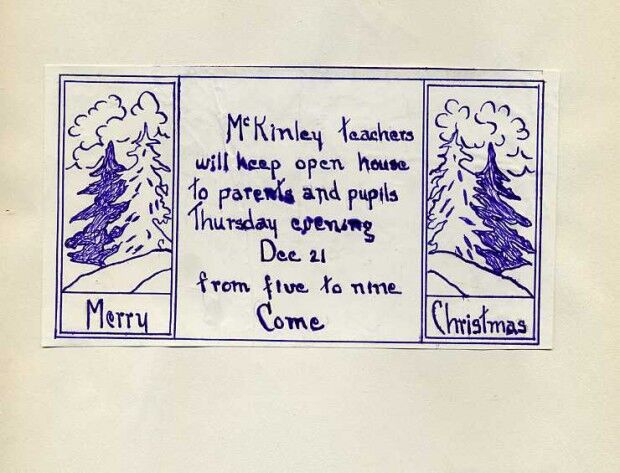 McKinley teachers
will keep open house
to parents and pupils
Thursday evening
Dec 21
from five to nine
Come
Merry
Christmas